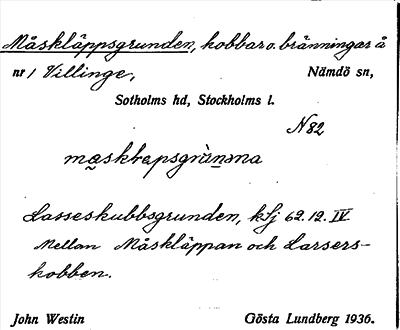 Måskläppsgrunden, kobbar o. bränningar å
nr 1 Villinge, Nämdö sn,
Sotholms hd, Stockholms l.
N 82
Lasseskubbsgrunden, kfj 62.12. IV
Mellan Måskläppan och Larsers-
kobben.
John Westin Gösta Lundberg 1936.